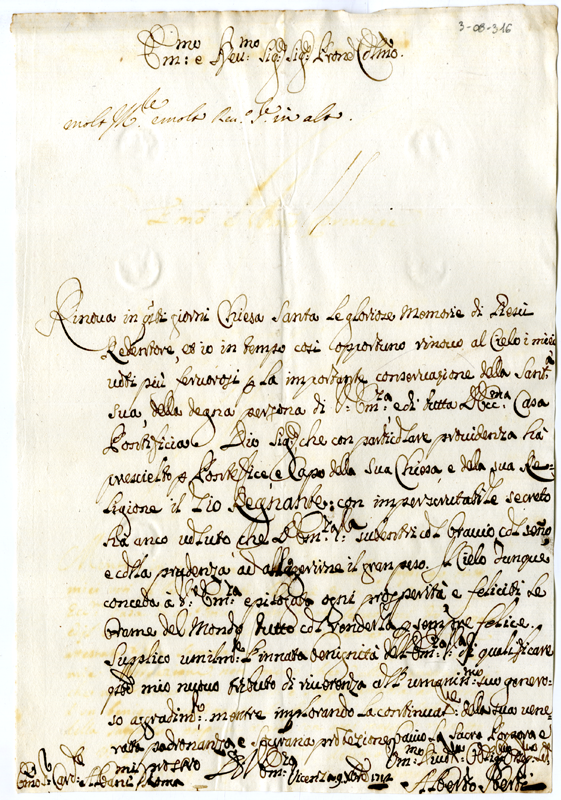 3-08-316
Em:mo e Reu:mo Sig.r Sig.r Prone Colmo.
molt Ill.e e molt Reu.o S.r in alt.
Rinoua in q.sti giorni Chiesa Santa le gloriose Memorie di Giesù
Redentore, et io in tempo così oportuno rinouo al Cielo i miei
uoti più feruorosi p la importante conseruazione della Sant.tà
sua, della degna persona di V: Em:za e di tutta l'Ecc:ma Casa
Pontificia. Dio Sig.re che con particolare prouidenza hà
prescielto p Pontefice, e Capo della sua Chiesa, e della sua Re-
ligione il Zio Regnante: con imperscrutabile secreto
hà anco uoluto che l'Em:za V:ra subentri col braccio col senno
e colla prudenza ad allegerirne il gran peso. Il Cielo dunque
conceda à V: Em:za epilogato ogni prosperità e felicità le
brame del Mondo tutto col renderla sempre felice.
Supplico umilm.te l'innata benignità dell'Em:za V:ra di qualificare
q.sto mio nuouo tributo di riuerenza all'umaniss:mo suo genero-
so aggradim.to: mentre implorando la continuat.ne della sua vene-
rata padronanza e sourana protezione, bacio la Sacra Porpora e
mi prostro
Em:mo S.r Card.le Albani Roma
D V Em:za
Vicenza
Alberto